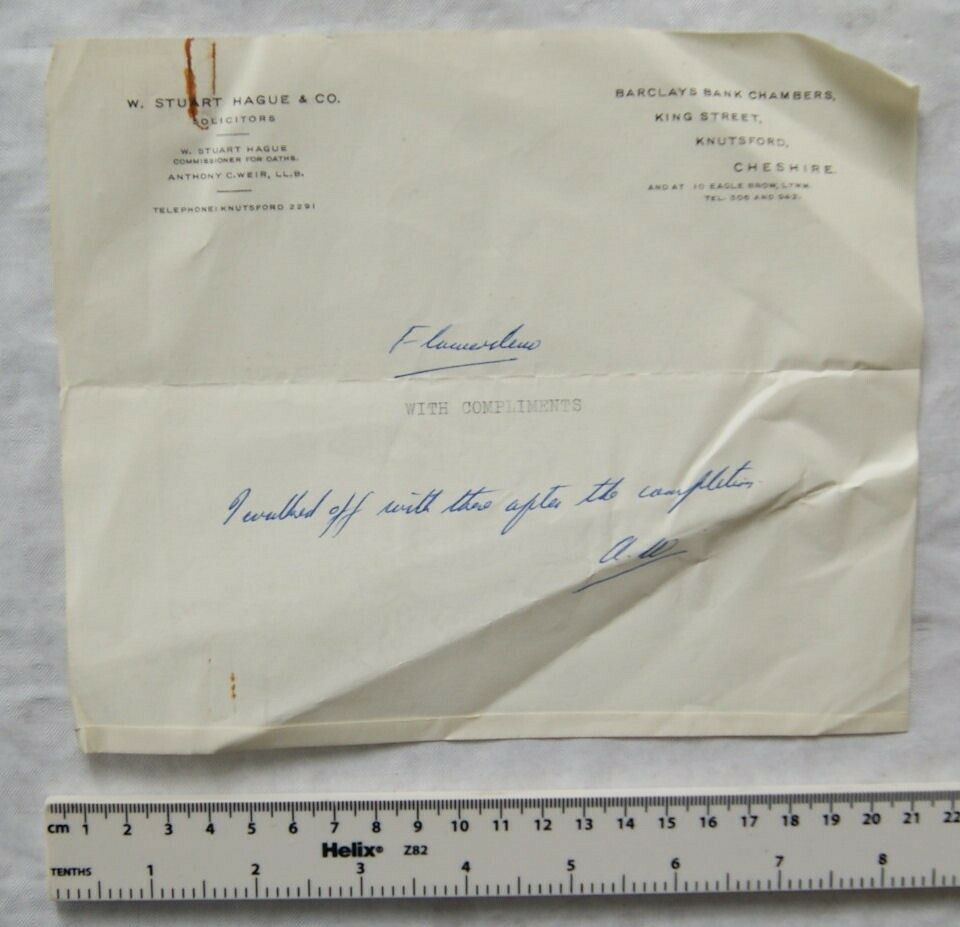 W. STUART HAGUE & CO.
SOLICITORS
W. STUART HAGUE
COMMISSIONER FOR OATHS.
ANTHONY C. WEIR, LL.B.
TELEPHONE: KNUTSFORD 2291
BARCLAYS BANK CHAMBERS,
KING STREET,
KNUTSFORD,
CHESHIRE.
AND AT 10 EAGLE BROW, LYMM.
TEL. 306 AND 942.
WITH COMPLIMENTS
I walked off with these after the completion.
A.W
cm 1 2 3 4 5 6 7 8 9 10 11 12 13 14 15 16 17 18 19 20 21 22
Helix® Z82
TENTHS 1 2 3 4 5 6 7 8